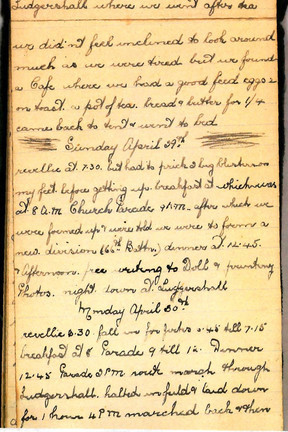 Ludgershall where we went after tea
we did'nt feel inclined to look around
much as we were tired but we found
a Cafe where we had a good feed eggs 2
on toast. a pot of tea. bread & butter for 1/4
came back to tent & went to bed
Sunday April 29th
reveille at 7.30. but had to prick 3 big blisters on
my feet before getting up. breakfast at which was
at 8 A.M. Church Parade 9 A.M. after which we
were formed up & were told we were to form a
new division (66th Battn.) dinner at 12.45.
Afternoon. free writing to Doll & printing
Photos. night down at Ludgershall
Monday April 30th
reveille 5.30. fall in for jerks 6.45 till 7.15
breakfast at 8 Parade 9 till 12. Dinner
12.45 Parade 2 PM route march through
Ludgershall. halted in field & laid down
for 1 hour 4 PM marched back & then